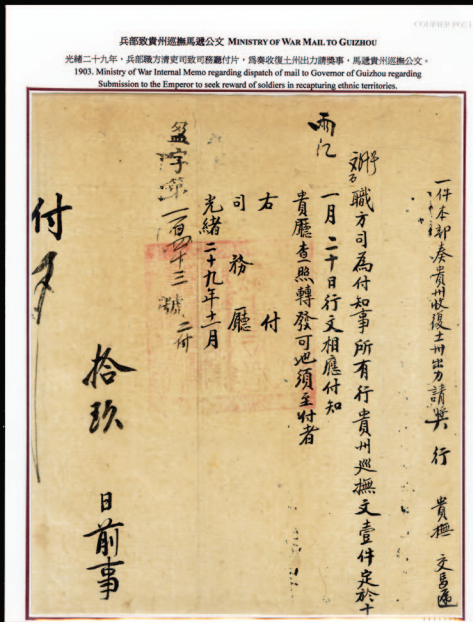 COURIER POST
兵部致貴州巡撫馬遞公文 MINISTRY OF WAR MAIL TO GUIZHOU
光緒二十九年，兵部職方清吏司致司務廳付片，為奏收復土州出力請獎事，馬遞貴州巡撫公文。
1903. Ministry of War Internal Memo regarding dispatch of mail to Governor of Guizhou regarding
Submission to the Emperor to seek reward of soldiers in recapturing ethnic territories.
一件本部奏貴州收復土州出力請獎 行 貴撫 文馬遞
職方司為付知事所有行貴州巡撫文壹件定於十
一月二十日行文相應付知
貴廳查照轉發可也須至付者
右付
司務廳
光緒二十九年十一月
字第一百四十三號
付
拾玖 日前事